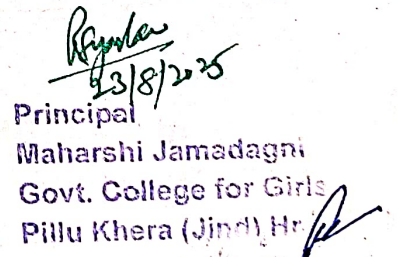 23/8/2025
Principal
Maharshi Jamadagni
Govt. College for Girls
Pillu Khera (Jind) Hr